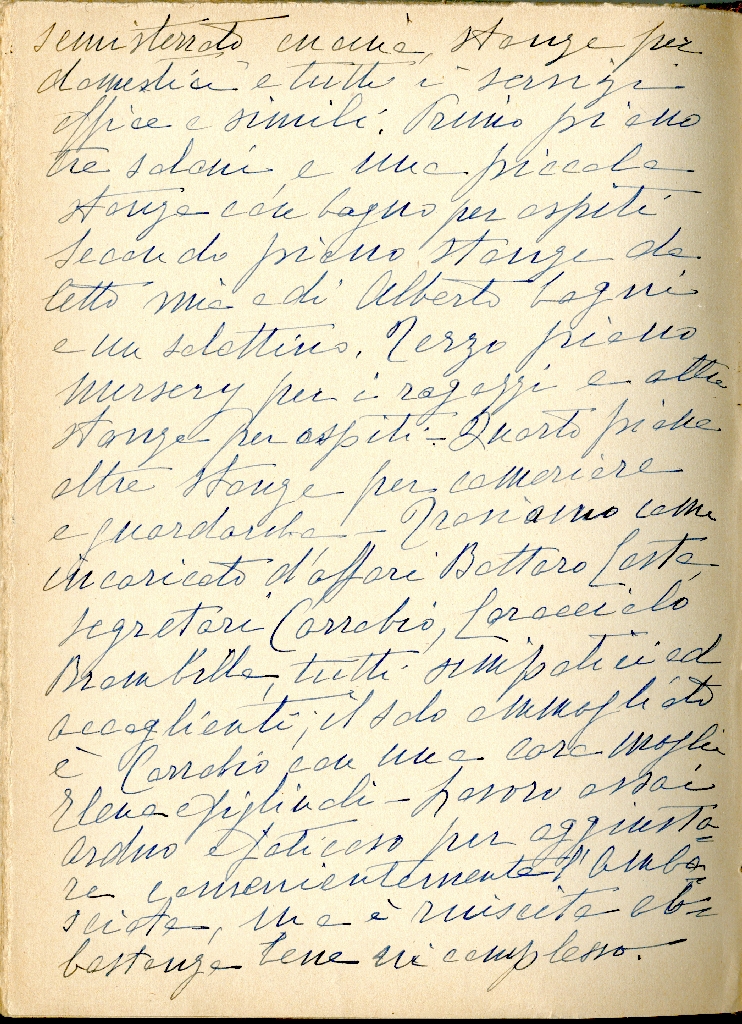 semisterrato cucina, stanze per
domestici e tutti i servizi
office e simili. Primo piano
tre saloni e una piccola
stanza con bagno per ospiti
Secondo piano stanze da
letto mia e di Alberto bagni
e un salottino. Terzo piano
nursery per i ragazzi e altre
stanze per ospiti - Quarto piano
altre stanze per cameriere
e guardaroba - Troviamo come
incaricato d'affari Bottaro Costa
segretari Carrobio, Caracciolo
Brambilla, tutti simpatici ed
accoglienti; il solo ammogliato
è Carrobio con una cara moglie
Elena e figliuoli - Lavoro assai
arduo e faticoso per aggiusta=
re convenientemente l'Amba=
sciata, ma è riuscita ab=
bastanza bene in complesso.